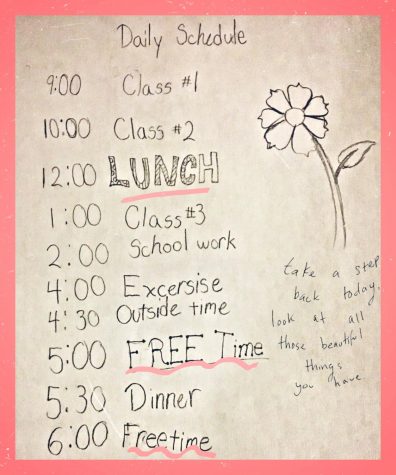 Daily Schedule
9:00 Class #1
10:00 Class #2
12:00 LUNCH
1:00 Class #3
2:00 School work
4:00 Excersise
4:30 Outside time
5:00 FREE Time
5:30 Dinner
6:00 Freetime
take a step
back today,
look at all
those beautiful
things
you have.